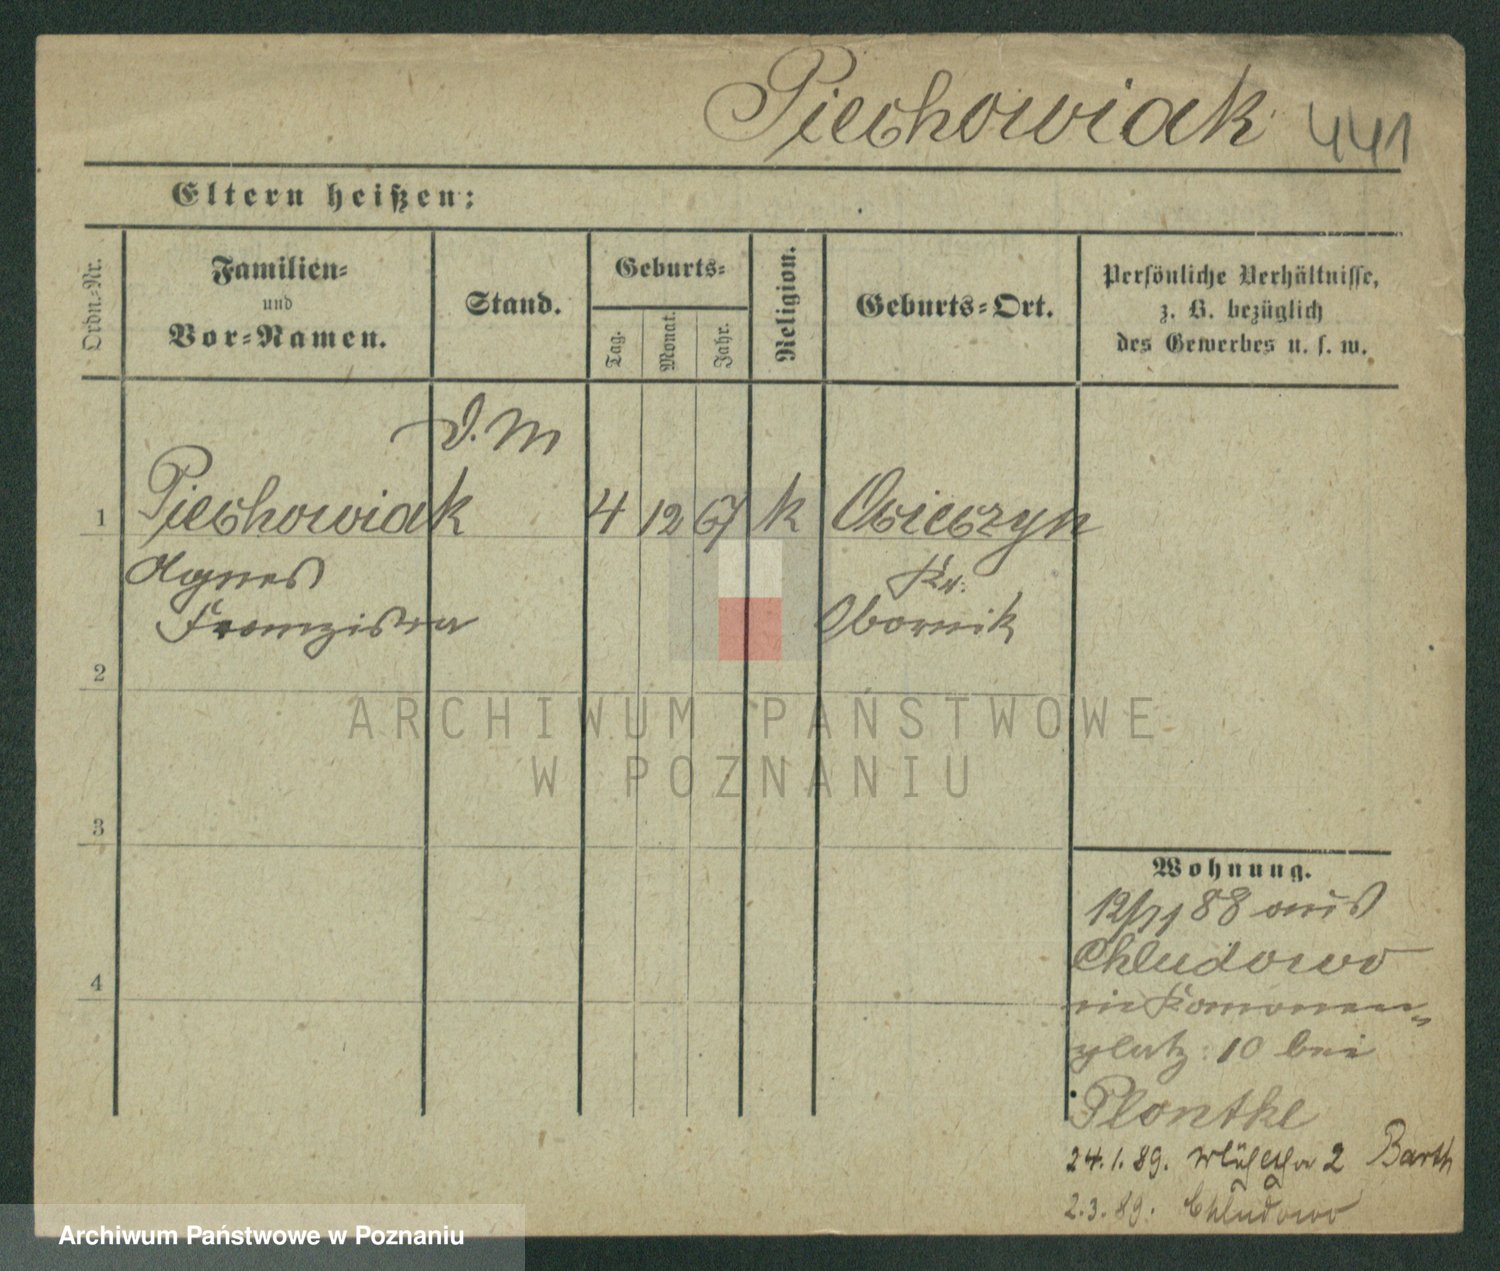 Piechowiak 441
Eltern heißen:
Ordn.-Nr.
Familien-
und
Vor-Namen.
Stand.
Geburts-
Tag.
Monat.
Jahr.
Religion.
Geburts-Ort.
Persönliche Verhältnisse,
z. B. bezüglich
des Gewerbes u. s. w.
D. M
1 Piechowiak 4 12 67 k Osieczyn
Agnes Kr.
Franziska Obornik
2
3
4
ARCHIWUM PAŃSTWOWE
W POZNANIU
Wohnung.
12/11 88 aus
Chludowo
platz 10 bei
Plontke
24.1.89. 2 Barth
2.3.89. Chludowo
Archiwum Państwowe w Poznaniu